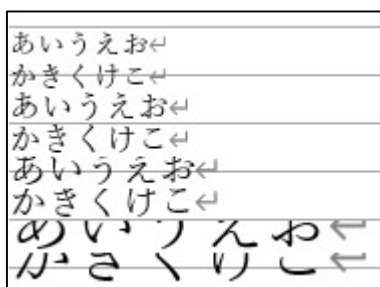 あいうえお
かきくけこ
あいうえお
かきくけこ
あいうえお
かきくけこ
あいうえお
かきくけこ